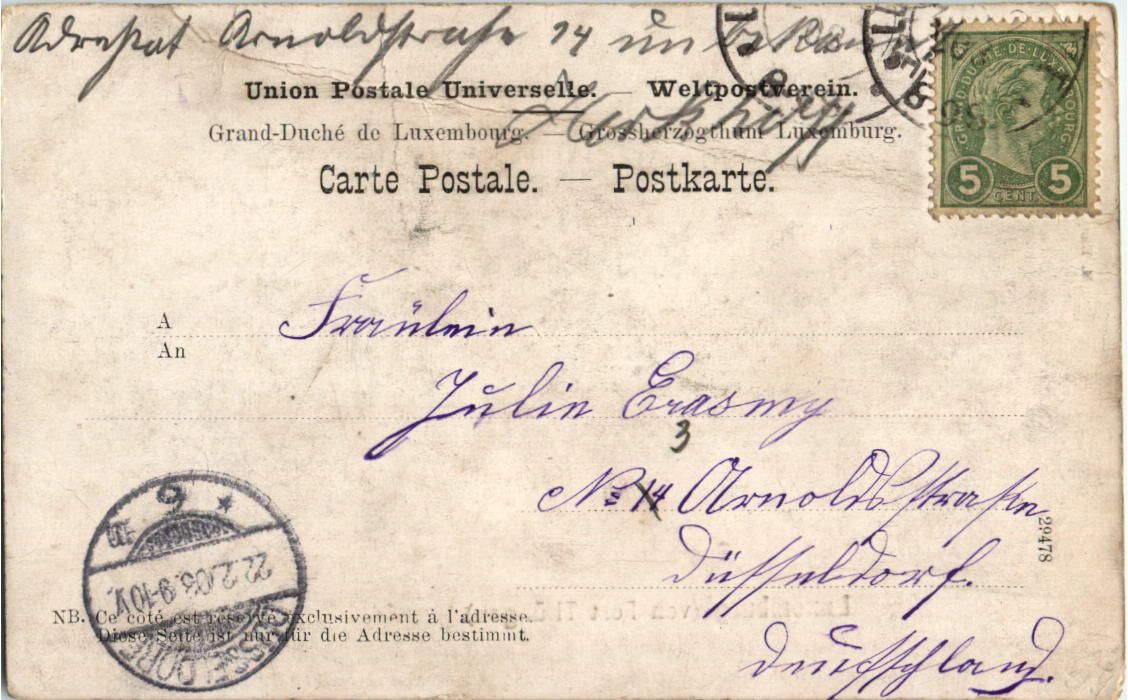 Adressat Arnoldstraße 14 unbekannt
Union Postale Universelle. — Weltpostverein.
Grand-Duché de Luxembourg. — Grossherzogthum Luxemburg.
Carte Postale. — Postkarte.
GRAND-DUCHÉ-DE-LUXEMBOURG
5 CENT. 5
A
An
Fräulein
Julie Erasmy
3
No 14 Arnoldsstraße
Düsseldorf.
Deutschland.
29478
DÜSSELDORF
22.2.03.9-10V.
NB. Ce coté est réservé exclusivement à l'adresse.
Diese Seite ist nur für die Adresse bestimmt.